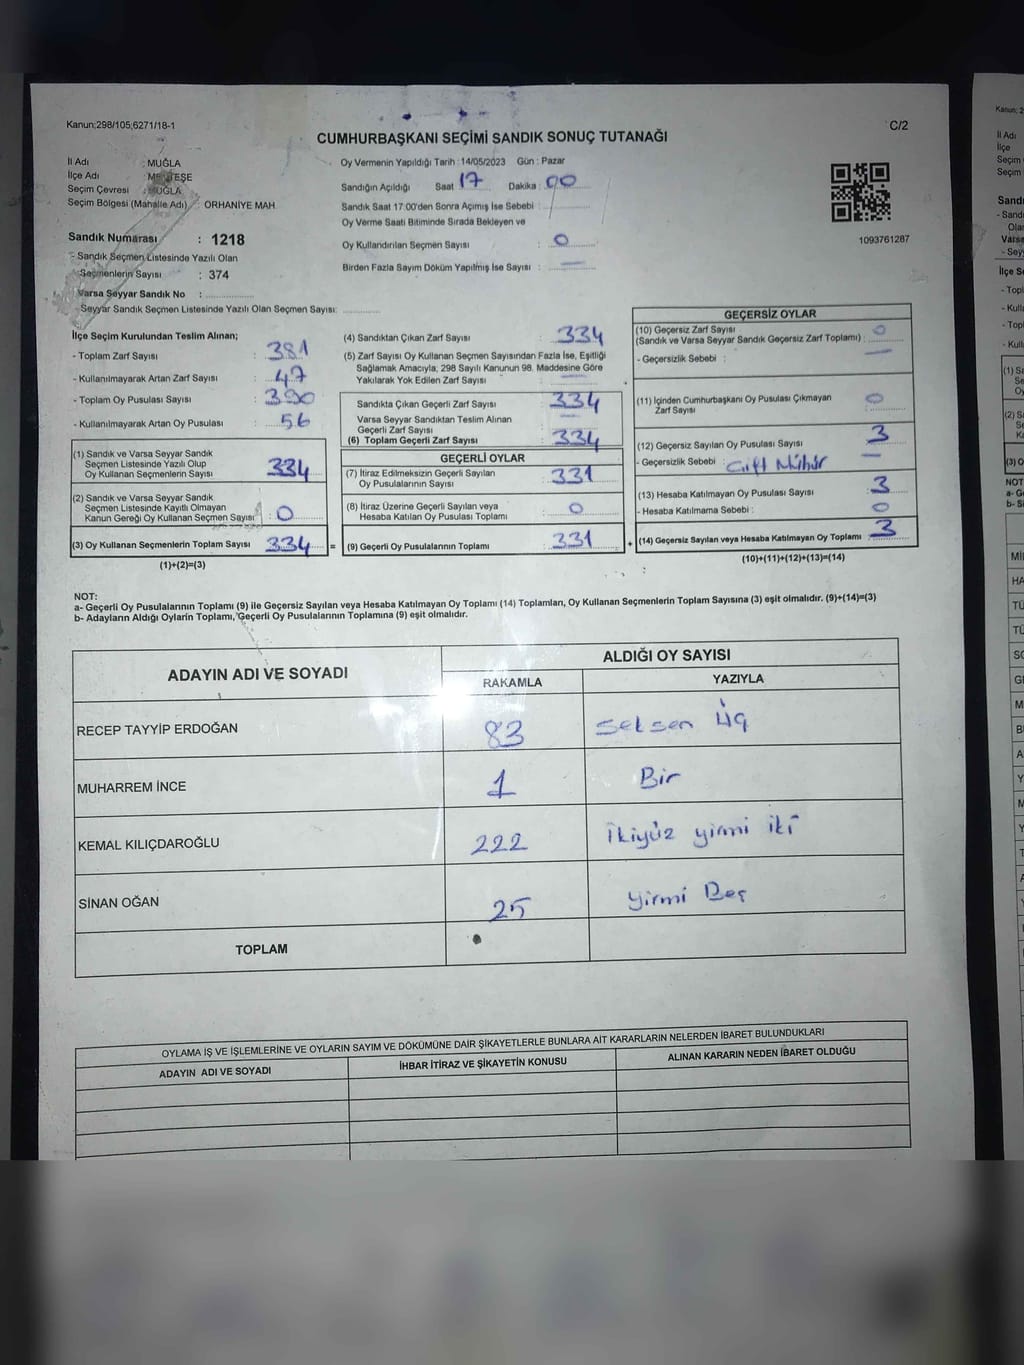 Kanun;298/105;6271/18-1
C/2
CUMHURBAŞKANI SEÇİMİ SANDIK SONUÇ TUTANAĞI
İl Adı : MUĞLA
İlçe Adı : MENTEŞE
Seçim Çevresi : MUĞLA
Seçim Bölgesi (Mahalle Adı) : ORHANİYE MAH.
Sandık Numarası : 1218
- Sandık Seçmen Listesinde Yazılı Olan
Seçmenlerin Sayısı : 374
Varsa Seyyar Sandık No :
- Seyyar Sandık Seçmen Listesinde Yazılı Olan Seçmen Sayısı:
Oy Vermenin Yapıldığı Tarih : 14/05/2023 Gün : Pazar
Sandığın Açıldığı Saat 17 Dakika : 00
Sandık Saat 17:00'den Sonra Açımış İse Sebebi :
Oy Verme Saati Bitiminde Sırada Bekleyen ve
Oy Kullandırılan Seçmen Sayısı : 0
Birden Fazla Sayım Döküm Yapılmış İse Sayısı : —
1093761287
İlçe Seçim Kurulundan Teslim Alınan;
- Toplam Zarf Sayısı : 381
- Kullanılmayarak Artan Zarf Sayısı : 47
- Toplam Oy Pusulası Sayısı : 390
- Kullanılmayarak Artan Oy Pusulası : 56
(1) Sandık ve Varsa Seyyar Sandık
Seçmen Listesinde Yazılı Olup
Oy Kullanan Seçmenlerin Sayısı : 334
(2) Sandık ve Varsa Seyyar Sandık
Seçmen Listesinde Kayıtlı Olmayan
Kanun Gereği Oy Kullanan Seçmen Sayısı : 0
(3) Oy Kullanan Seçmenlerin Toplam Sayısı 334 =
(1)+(2)=(3)
(4) Sandıktan Çıkan Zarf Sayısı : 334
(5) Zarf Sayısı Oy Kullanan Seçmen Sayısından Fazla İse, Eşitliği
Sağlamak Amacıyla; 298 Sayılı Kanunun 98. Maddesine Göre
Yakılarak Yok Edilen Zarf Sayısı : —
Sandıkta Çıkan Geçerli Zarf Sayısı : 334
Varsa Seyyar Sandıktan Teslim Alınan
Geçerli Zarf Sayısı : —
(6) Toplam Geçerli Zarf Sayısı : 334
GEÇERLİ OYLAR
(7) İtiraz Edilmeksizin Geçerli Sayılan
Oy Pusulalarının Sayısı : 331
(8) İtiraz Üzerine Geçerli Sayılan veya
Hesaba Katılan Oy Pusulası Toplamı : 0
(9) Geçerli Oy Pusulalarının Toplamı : 331 +
GEÇERSİZ OYLAR
(10) Geçersiz Zarf Sayısı
(Sandık ve Varsa Seyyar Sandık Geçersiz Zarf Toplamı) : 0
- Geçersizlik Sebebi : —
(11) İçinden Cumhurbaşkanı Oy Pusulası Çıkmayan
Zarf Sayısı : 0
(12) Geçersiz Sayılan Oy Pusulası Sayısı : 3
- Geçersizlik Sebebi : Çift Mühür —
(13) Hesaba Katılmayan Oy Pusulası Sayısı : 3
- Hesaba Katılmama Sebebi : 0
(14) Geçersiz Sayılan veya Hesaba Katılmayan Oy Toplamı : 3
(10)+(11)+(12)+(13)=(14)
NOT:
a- Geçerli Oy Pusulalarının Toplamı (9) ile Geçersiz Sayılan veya Hesaba Katılmayan Oy Toplamı (14) Toplamları, Oy Kullanan Seçmenlerin Toplam Sayısına (3) eşit olmalıdır. (9)+(14)=(3)
b- Adayların Aldığı Oyların Toplamı, Geçerli Oy Pusulalarının Toplamına (9) eşit olmalıdır.
ADAYIN ADI VE SOYADI
ALDIĞI OY SAYISI
RAKAMLA YAZIYLA
RECEP TAYYİP ERDOĞAN 83 Seksen üç
MUHARREM İNCE 1 Bir
KEMAL KILIÇDAROĞLU 222 İkiyüz yirmi iki
SİNAN OĞAN 25 yirmi Beş
TOPLAM
OYLAMA İŞ VE İŞLEMLERİNE VE OYLARIN SAYIM VE DÖKÜMÜNE DAİR ŞİKAYETLERLE BUNLARA AİT KARARLARIN NELERDEN İBARET BULUNDUKLARI
ADAYIN ADI VE SOYADI İHBAR İTİRAZ VE ŞİKAYETİN KONUSU ALINAN KARARIN NEDEN İBARET OLDUĞU